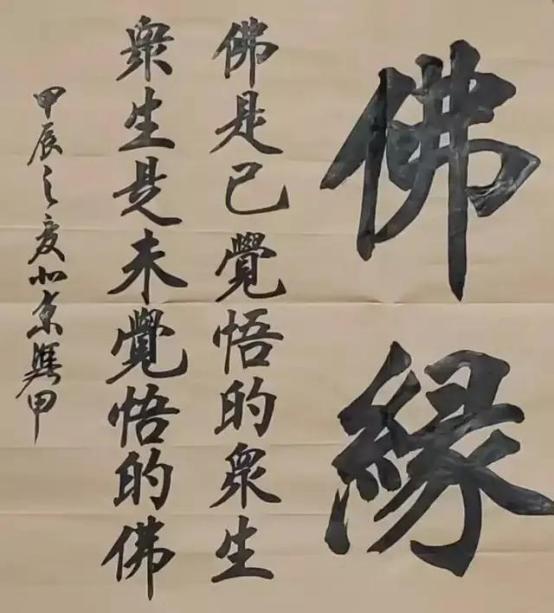 佛緣
佛是已覺悟的衆生
衆生是未覺悟的佛
甲辰之夏北京雋甲